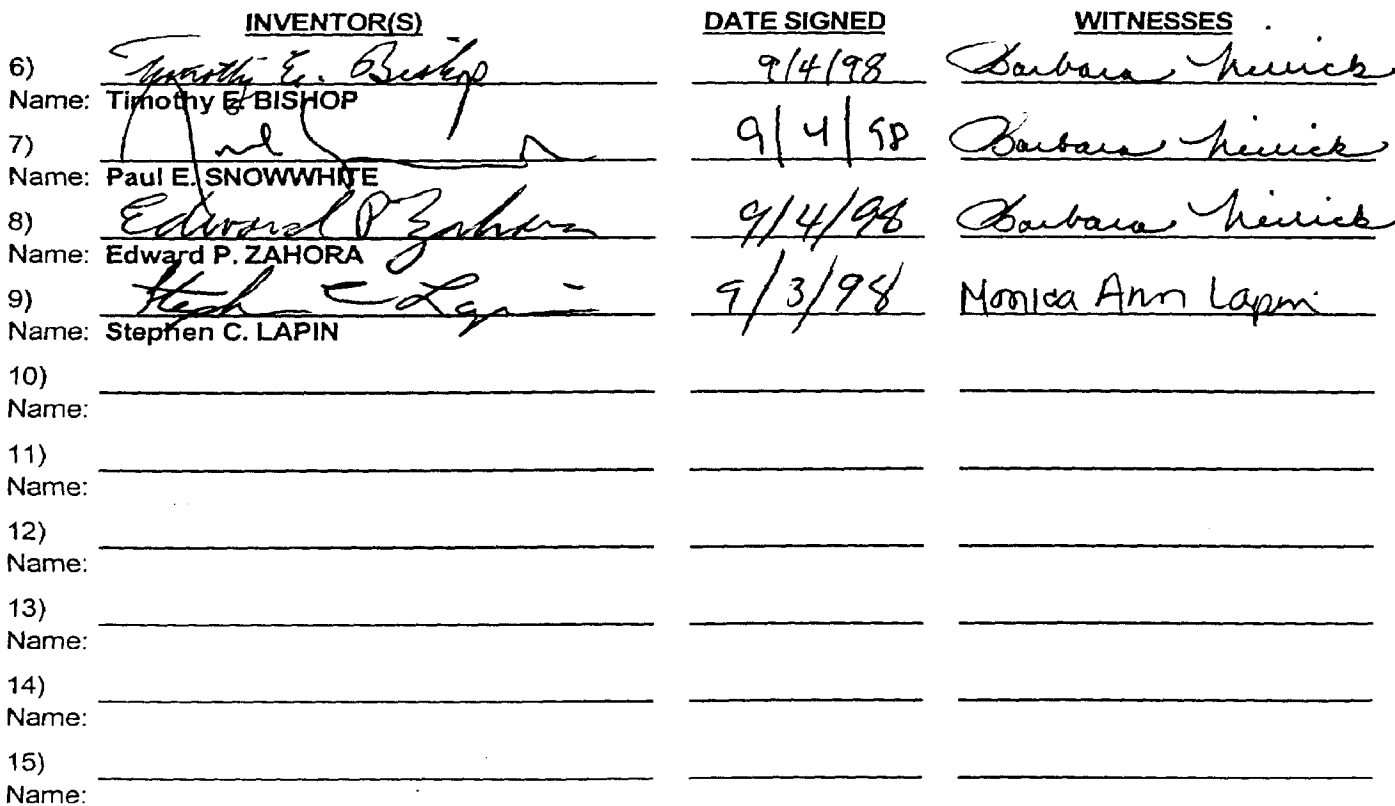 INVENTOR(S) DATE SIGNED WITNESSES
6) Timothy E. Bishop 9/4/98 Barbara
Name: Timothy E. BISHOP
7) 9/4/98 Barbara
Name: Paul E. SNOWWHITE
8) Edward P Zahora 9/4/98 Barbara
Name: Edward P. ZAHORA
9) Stephen C Lapin 9/3/98 Monica Ann Lapin
Name: Stephen C. LAPIN
10)
Name:
11)
Name:
12)
Name:
13)
Name:
14)
Name:
15)
Name: